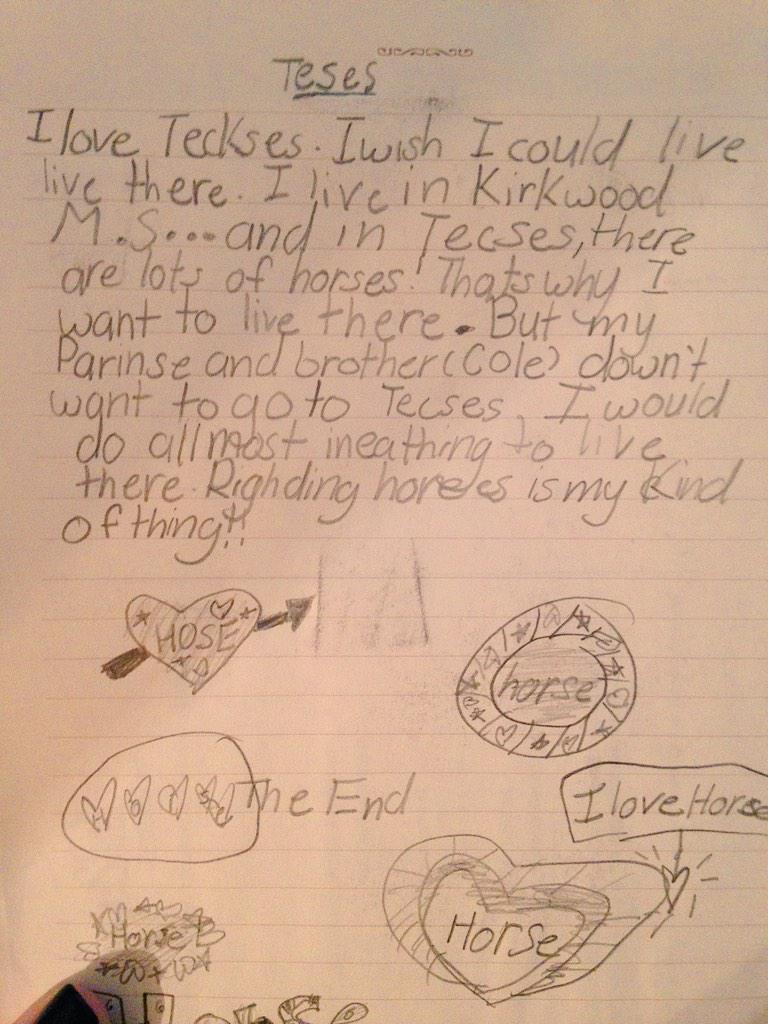 Teses
I love Teckses. I wish I could live
live there. I live in Kirkwood
M.S...and in Tecses, there
are lots of horses! Thats why I
want to live there. But my
Parinse and brother (Cole) down't
want to go to Tecses. I would
do allmost ineathing to live
there. Righding horeses is my Kind
of thing!!
HOSE
horse
The End
I love Horse
Horse
Horse
Horse